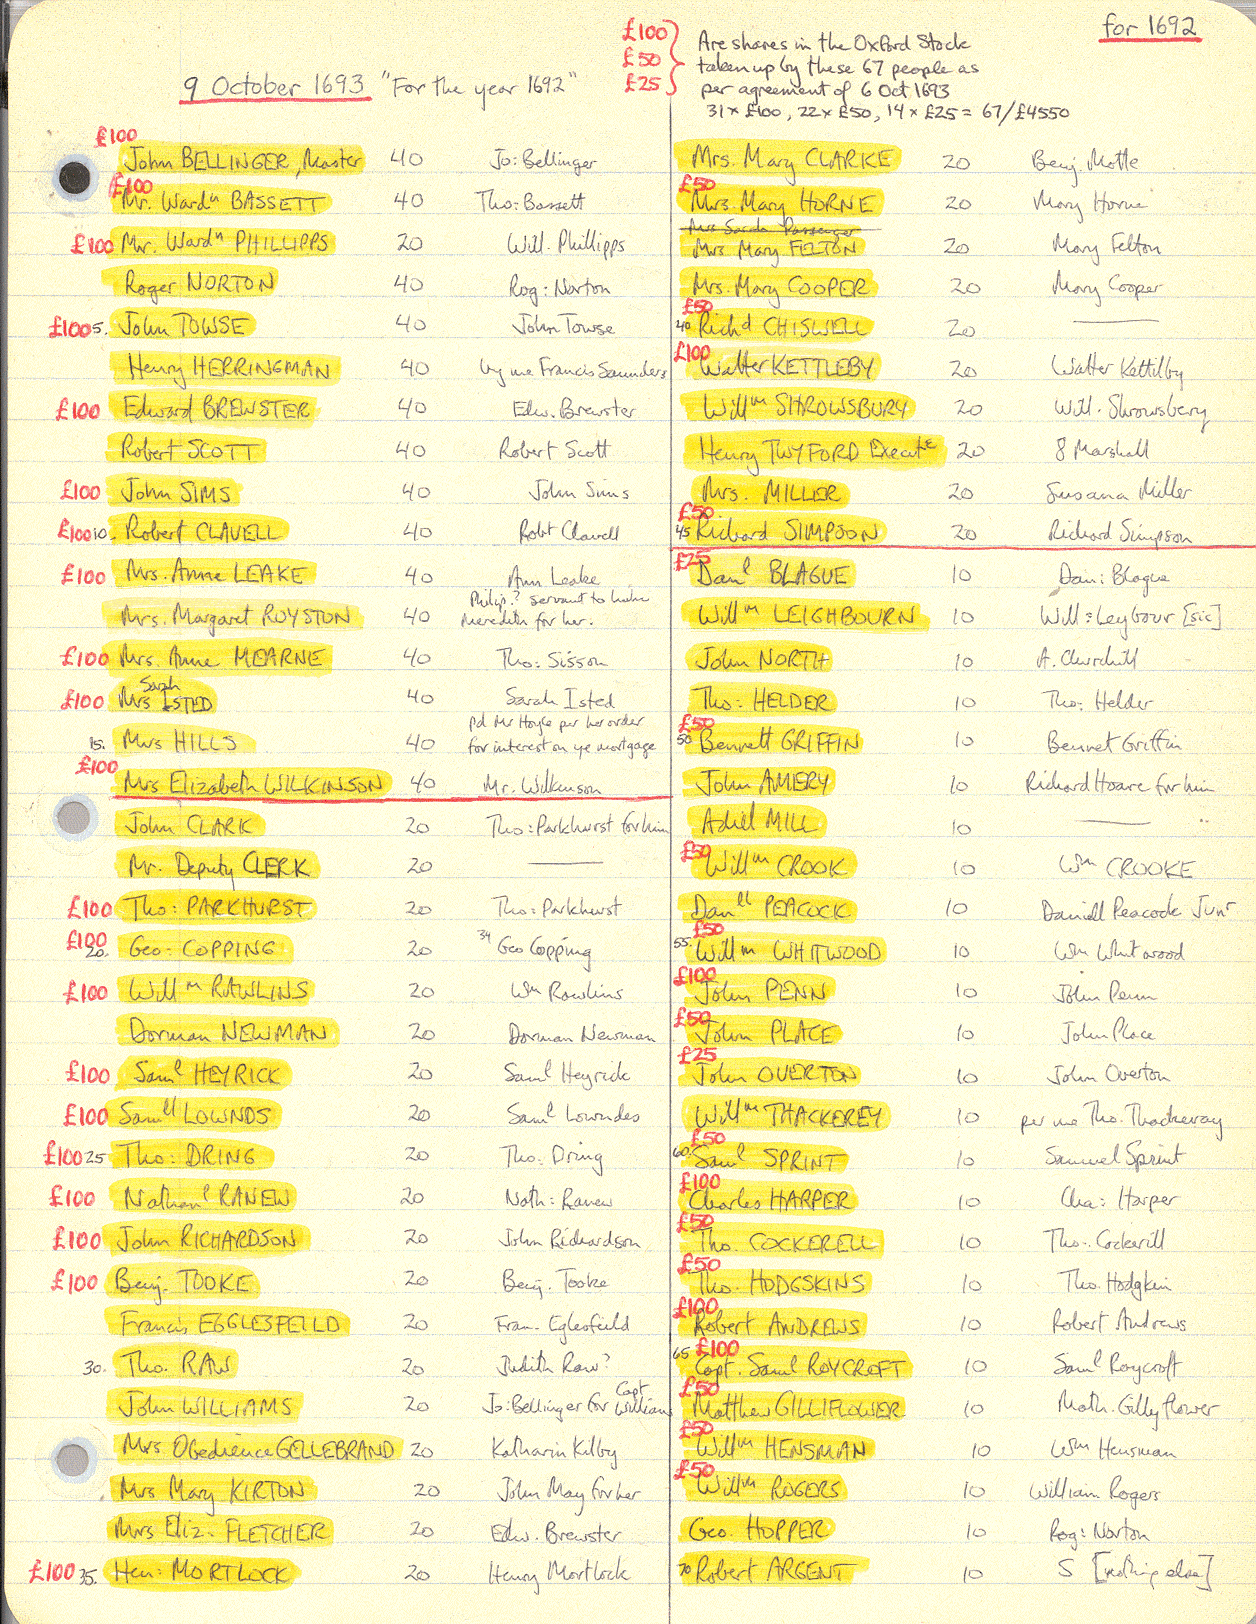 for 1692
£100
£50
£25
Are shares in the Oxford Stock
taken up by these 67 people as
per agreement of 6 Oct 1693
31 x £100, 22 x £50, 14 x £25 = 67/£4550
9 October 1693 "For the year 1692"
£100
John BELLINGER, Master 40 Jo: Bellinger
£100
Mr. Wardn BASSETT 40 Tho: Bassett
£100 Mr. Wardn PHILLIPPS 20 Will. Phillipps
Roger NORTON 40 Rog: Norton
£100 5. John TOWSE 40 John Towse
Henry HERRINGMAN 40 by me Francis Saunders
£100 Edward BREWSTER 40 Edw. Brewster
Robert SCOTT 40 Robert Scott
£100 John SIMS 40 John Sims
£100 10. Robert CLAVELL 40 Robt Clavell
£100 Mrs. Anne LEAKE 40 Ann Leake
Philip? servant to Luke
Mrs. Margaret ROYSTON 40 Meredith for her.
£100 Mrs. Anne MEARNE 40 Tho: Sisson
Sarah
£100 Mrs ISTED 40 Sarah Isted
pd Mr Hoyle per her order
15. Mrs HILLS 40 for interest on ye mortgage
£100
Mrs Elizabeth WILKINSON 40 Mr. Wilkinson
John CLARK 20 Tho: Parkhurst for him
Mr. Deputy CLERK 20 ———
£100 Tho: PARKHURST 20 Tho: Parkhurst
£100
20. Geo: COPPING 20 34 Geo Copping
£100 Willm RAWLINS 20 Wm Rawlins
Dorman NEWMAN 20 Dorman Newman
£100 Saml HEYRICK 20 Saml Heyrick
£100 Samll LOWNDS 20 Saml Lowndes
£100 25 Tho: DRING 20 Tho: Dring
£100 Nathanl RANEW 20 Nath: Ranew
£100 John RICHARDSON 20 John Richardson
£100 Benj. TOOKE 20 Benj. Tooke
Francis EGGLESFEILD 20 Fran. Eglesfeild
30. Tho. RAW 20 Judith Raw?
Capt
John WILLIAMS 20 Jo: Bellinger for Williams
Mrs Obedience GELLEBRAND 20 Katharin Kilby
Mrs Mary KIRTON 20 John May for her
Mrs Eliz. FLETCHER 20 Edw. Brewster
£100 35. Hen: MORTLOCK 20 Henry Mortlock
Mrs. Mary CLARKE 20 Benj. Motte
£50
Mrs. Mary HORNE 20 Mary Horne
Mrs Sarah Passenger
Mrs Mary FELTON 20 Mary Felton
Mrs. Mary COOPER 20 Mary Cooper
£50
40 Richd CHISWELL 20 ———
£100
Walter KETTLEBY 20 Walter Kettilby
Willm SHROWSBURY 20 Will. Shrowsbery
Henry TWYFORD Execute 20 8 Marshall
Mrs. MILLER 20 Susana Miller
£50
45 Richard SIMPSON 20 Richard Simpson
£25
Danl BLAGUE 10 Dan: Blague
Willm LEIGHBOURN 10 Will: Leybour [sic]
John NORTH 10 A. Churchill
Tho: HELDER 10 Tho: Helder
£50
50 Bennett GRIFFIN 10 Bennet Griffin
John AMERY 10 Richard Hoare for him
Adiel MILL 10 ———
£50
Willm CROOK 10 Wm CROOKE
Danll PEACOCK 10 Daniell Peacock Junr
£50
55. Willm WHITWOOD 10 Wm Whitwood
£100
John PENN 10 John Penn
£50
John PLACE 10 John Place
£25
John OVERTON 10 John Overton
Willm THACKEREY 10 per me Tho. Thackeray
£50
60. Saml SPRINT 10 Samuel Sprint
£100
Charles HARPER 10 Cha: Harper
£50
Tho. COCKERELL 10 Tho. Cockerill
£50
Tho. HODGSKINS 10 Tho. Hodgkin
£100
Robert ANDREWS 10 Robert Andrews
£100
65 Capt. Saml ROYCROFT 10 Saml Roycroft
£50
Matthew GILLIFLOWER 10 Math. Gillyflower
£50
Willm HENSMAN 10 Wm Hensman
£50
Willm ROGERS 10 William Rogers
Geo. HOPPER 10 Rog: Norton
70 Robert ARGENT 10 S [nothing else]